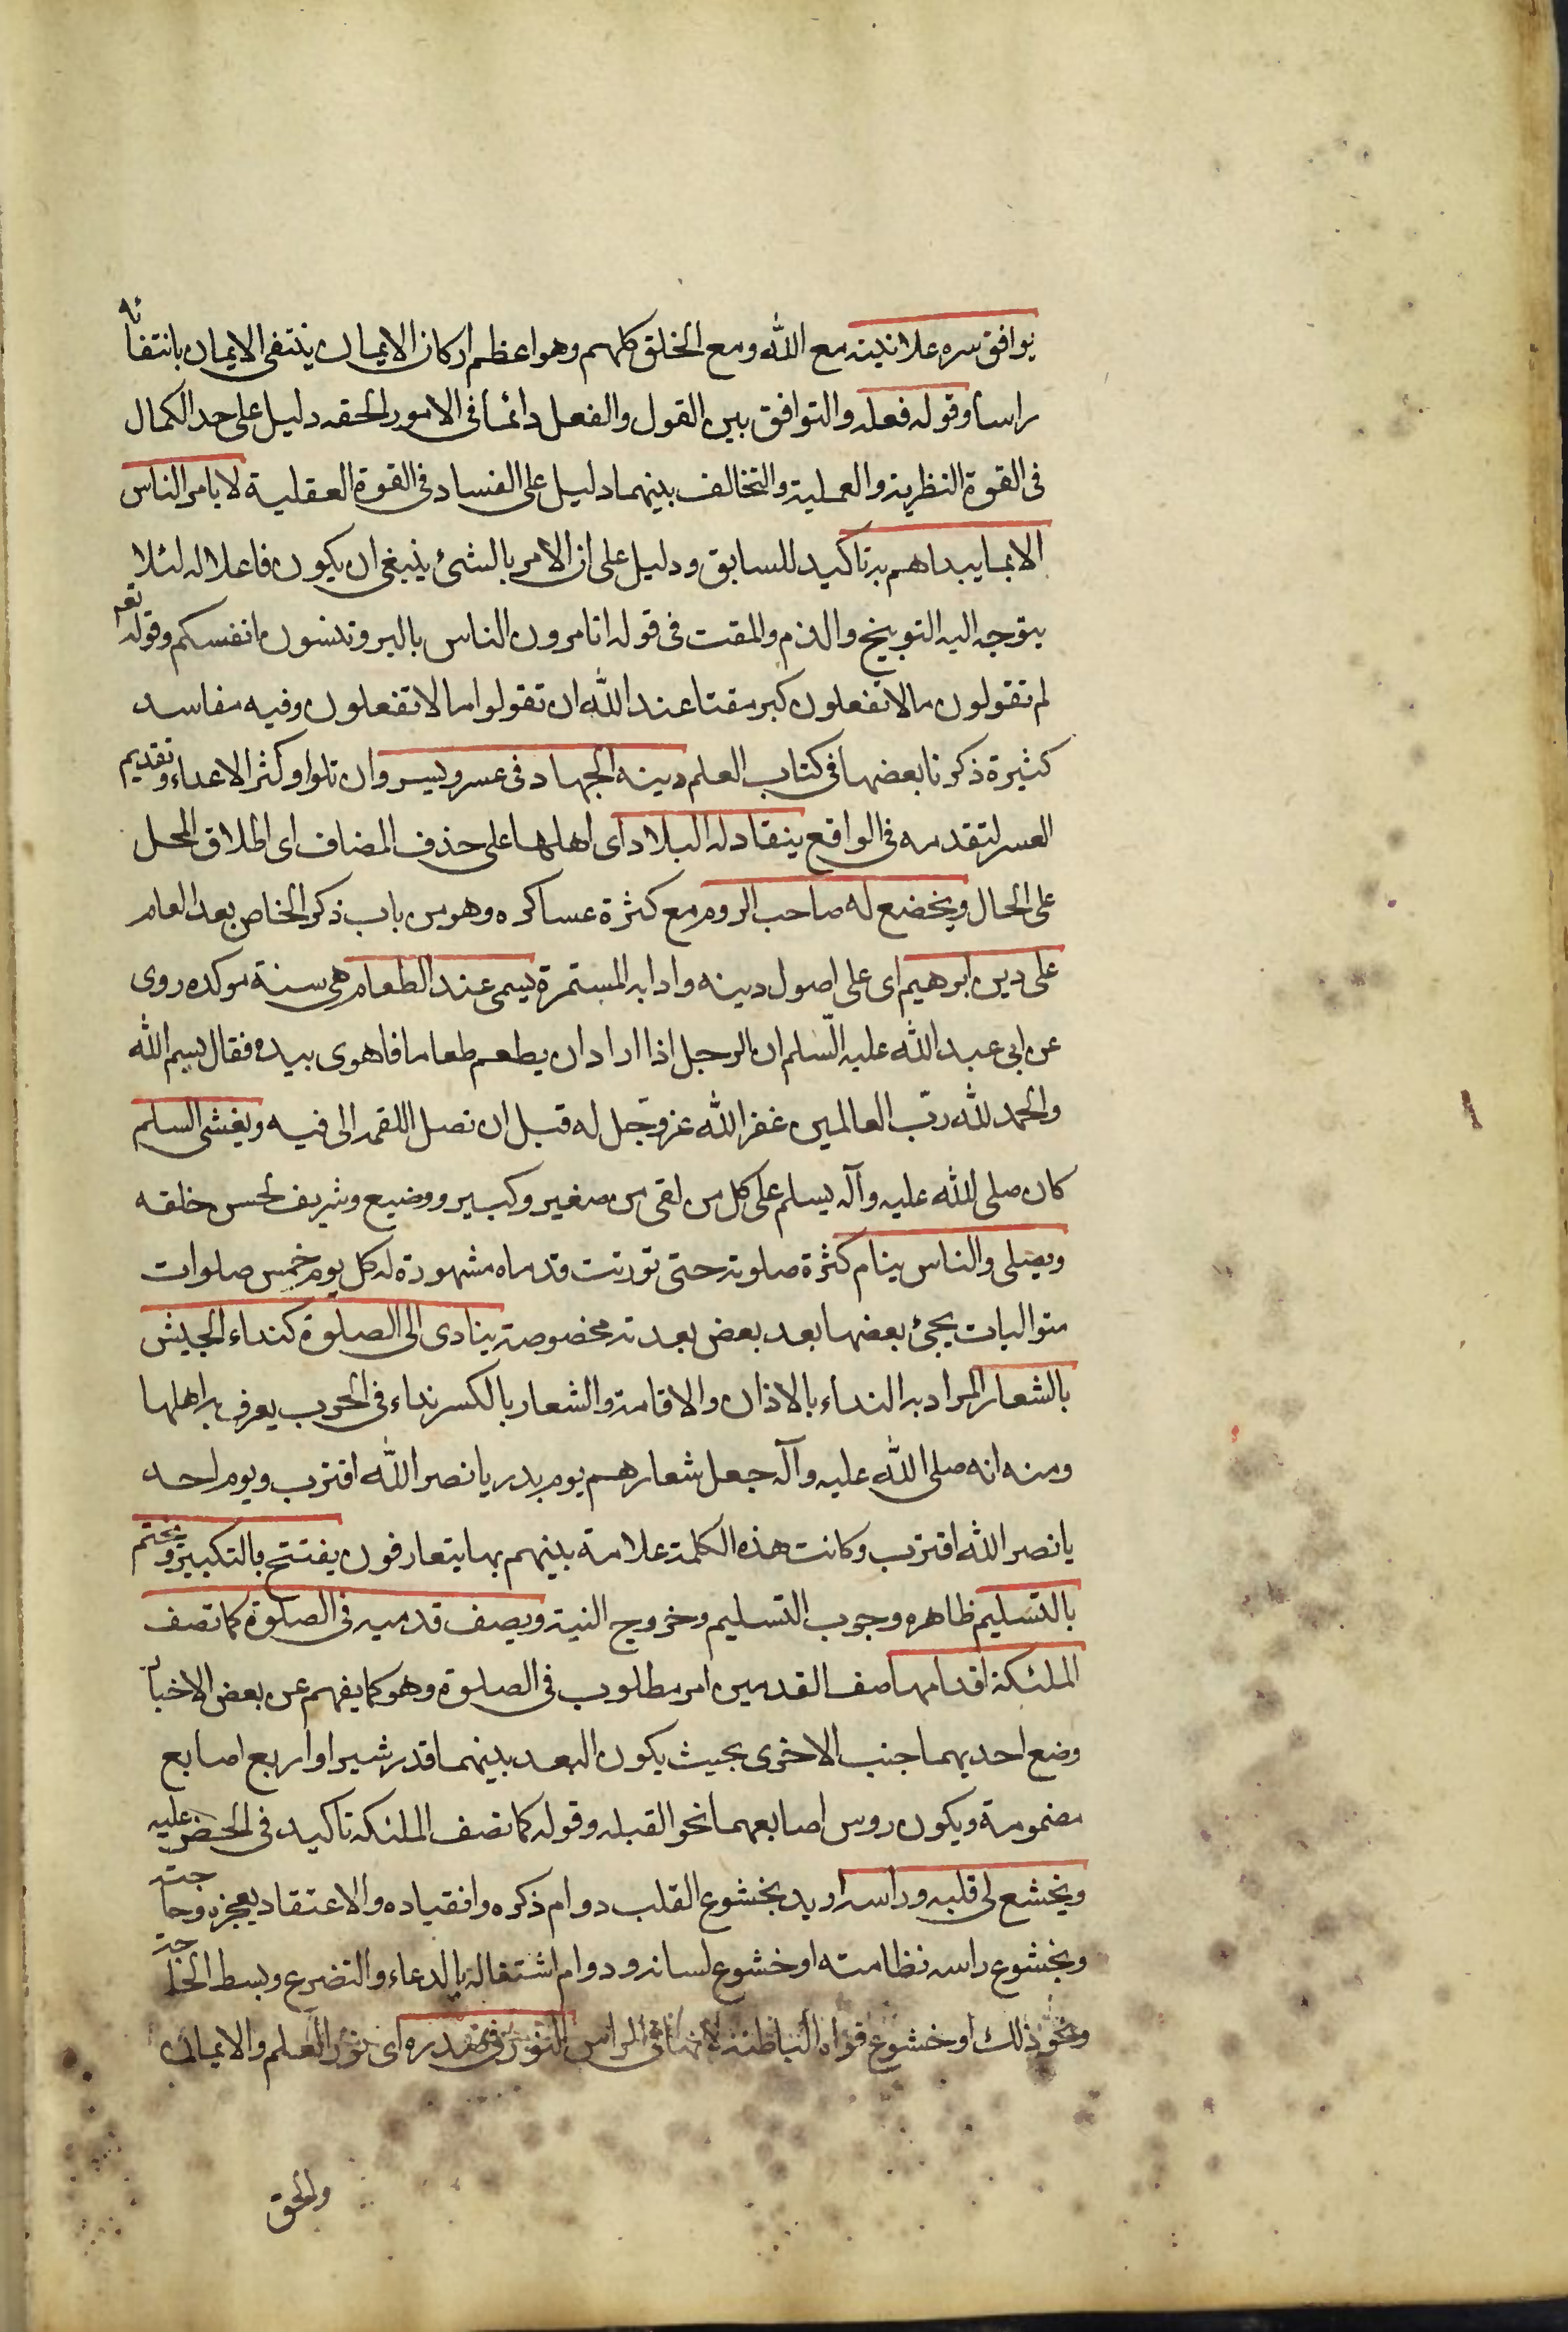 يوافق سره علانيته مع الله ومع الخلق كلهم وهو اعظم اركان الايمان ينتفى الايمان بانتفائه
راسا وقوله فعله والتوافق بين القول والفعل دائما فى الامور الحقه دليل على حد الكمال
فى القوة النظرية والعملية والتخالف بينهما دليل على الفساد فى القوة العقلية لا يامر الناس
الا بما يبداهم به تاكيد للسابق ودليل على ان الامر بالشئ ينبغى ان يكون فاعلا له لئلا
يتوجه اليه التوبيخ والذم والمقت فى قوله اتامرون الناس بالبر وتنسون انفسكم وقوله تعه
لم تقولون ما لا تفعلون كبر مقتا عند الله ان تقولوا ما لا تفعلون وفيه مفاسد
كثيرة ذكرنا بعضها فى كتاب العلم دينه الجهاد فى عسر ويسر وان تلوا وكثر الاعداء وتقديم
العسر لتقدمه فى الواقع ينقاد له البلاد اى اهلها على حذف المضاف اى اطلاق المحل
على الحال ويخضع له صاحب الروم مع كثرة عساكره وهو من باب ذكر الخاص بعد العام
على دين ابرهيم اى على اصول دينه وادابه المستمرة يسمى عند الطعام هى سنة موكده روى
عن ابى عبد الله عليه السّلم ان الرجل اذا اراد ان يطعم طعاما فاهوى بيده فقال بسم الله
والحمد لله ربّ العالمين غفر الله عز وجّل له قبل ان تصل اللقمه الى فيه ويفشى السلم
كان صلى الله عليه وآله يسلم على كل من لقى من صغير وكبير ووضيع وشريف لحسن خلقه
ويصلى والناس ينام كثرة صلوته حتى تورّمت قدماه مشهورة له كل يوم خمس صلوات
متواليات يجئ بعضها بعد بعض بعدته مخصوصة ينادى الى الصلوة كنداء الجيش
بالشعار المراد به النداء بالاذان والاقامة والشعار بالكسر نداء فى الحرب يعرف به اهلها
ومنه انه صلى الله عليه وآله جعل شعارهم يوم بدر يا نصر الله اقترب ويوم احد
يا نصر الله اقترب وكانت هذه الكلمة علامة بينهم بها يتعارفون يفتتح بالتكبير ويختم
بالتسليم ظاهره وجوب التسليم وخروج النية ويصف قدميه فى الصلوة كما تصف
الملئكة اقدامها صف القدمين امر مطلوب فى الصلوة وهو كما يفهم عن بعض الاخبار
وضع احديهما جنب الاخرى بحيث يكون البعد بينهما قدر شبر او اربع اصابع
مضمومة ويكون روس اصابعهما نحو القبله وقوله كما تصف الملئكه تاكيد فى الحض عليه
ويخشع لى قلبه وراسه اريد بخشوع القلب دوام ذكره وانقياده والاعتقاد بعجزه وحاجته
وبخشوع راسه نظامته او خشوع لسانه ودوام اشتغاله بالدعاء والتضرع وبسط
ونحو ذلك او خشوع قواه الباطنة لانها فى الراس النور فى صدره اى نور العلم والايمان
والحق